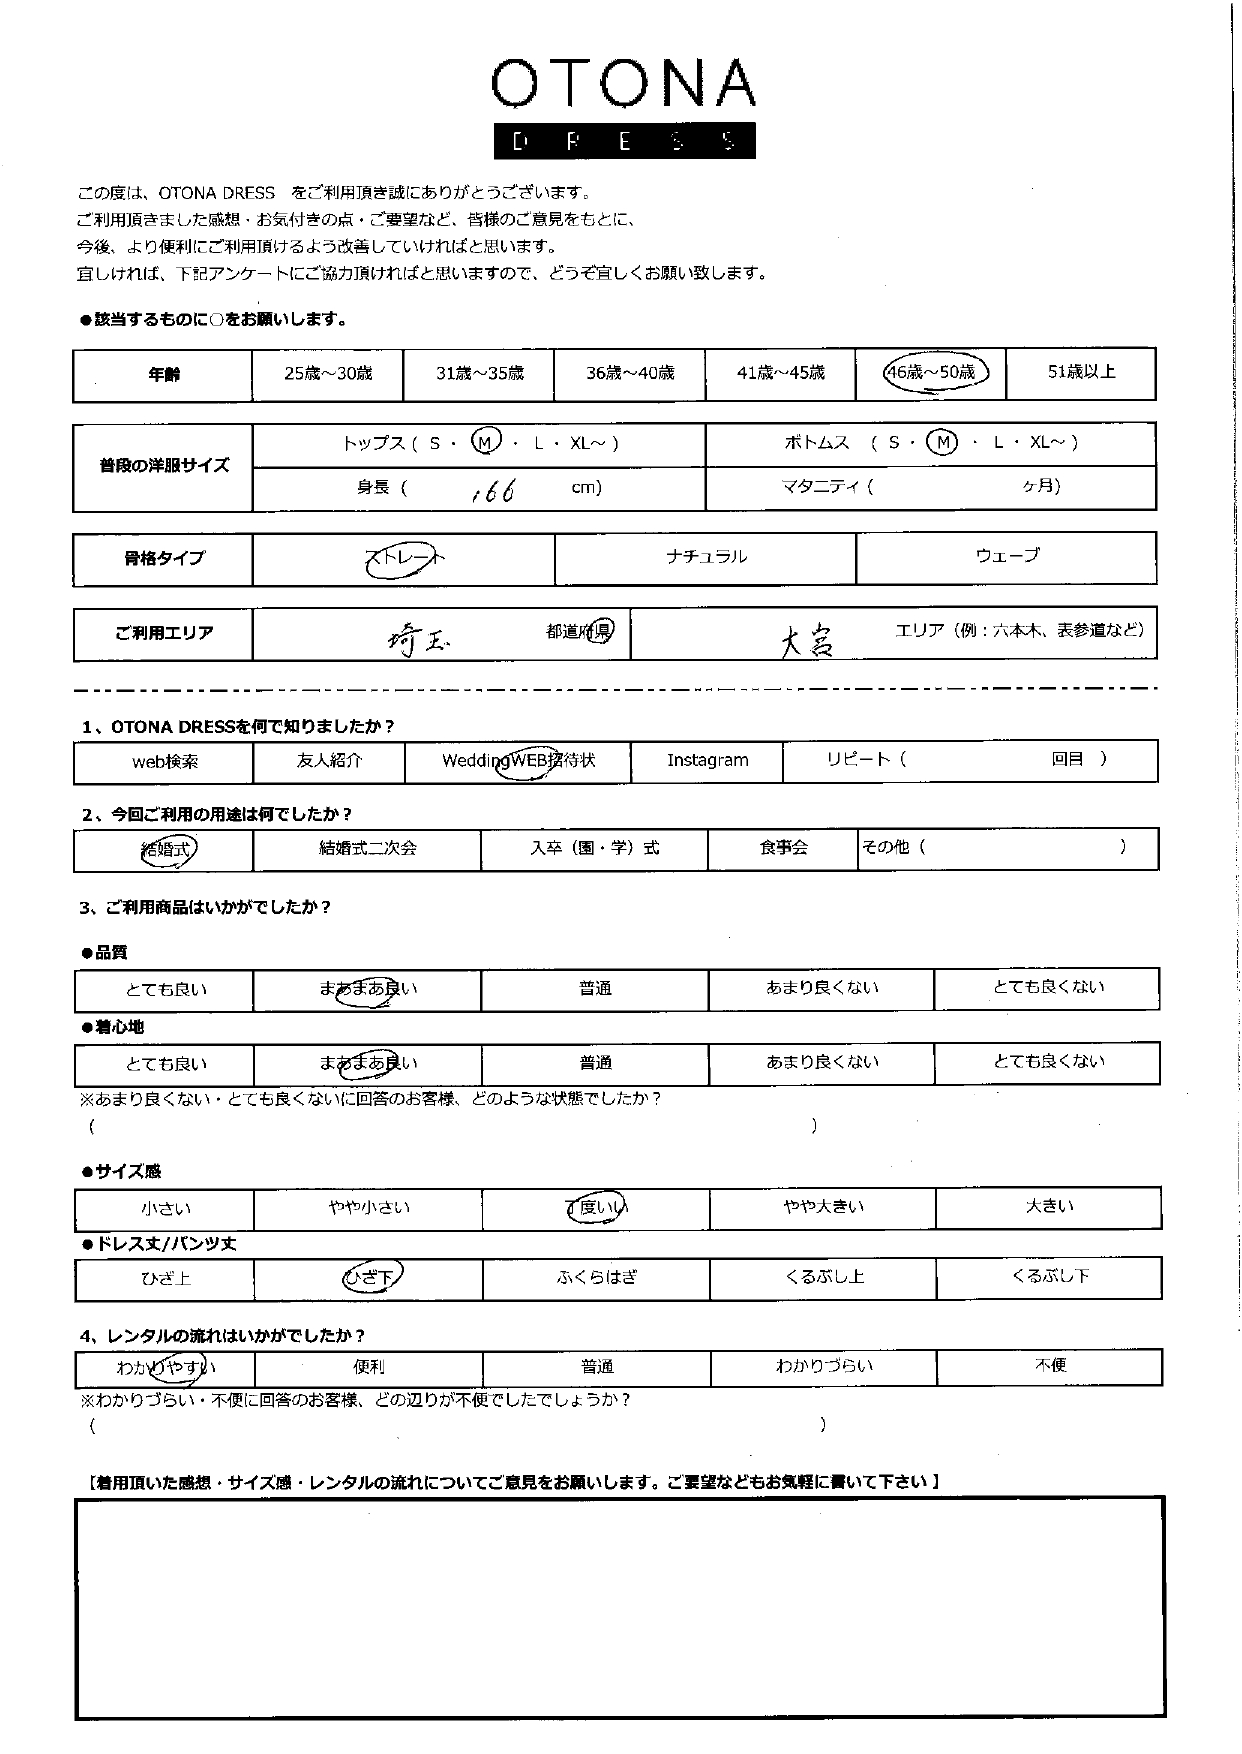 OTONA
DRESS
この度は、OTONA DRESS　をご利用頂き誠にありがとうございます。
ご利用頂きました感想・お気付きの点・ご要望など、皆様のご意見をもとに、
今後、より便利にご利用頂けるよう改善していければと思います。
宜しければ、下記アンケートにご協力頂ければと思いますので、どうぞ宜しくお願い致します。
●該当するものに○をお願いします。
年齢 25歳～30歳 31歳～35歳 36歳～40歳 41歳～45歳 46歳～50歳 51歳以上
普段の洋服サイズ トップス ( S ・ M ・ L ・ XL～ ) ボトムス ( S ・ M ・ L ・ XL～ )
身長 ( 166 cm) マタニティ ( ヶ月)
骨格タイプ ストレート ナチュラル ウェーブ
ご利用エリア 埼玉 都道府県 大宮 エリア（例：六本木、表参道など）
1、OTONA DRESSを何で知りましたか？
web検索 友人紹介 WeddingWEB招待状 Instagram リピート（ 回目 ）
2、今回ご利用の用途は何でしたか？
結婚式 結婚式二次会 入卒（園・学）式 食事会 その他（ ）
3、ご利用商品はいかがでしたか？
●品質
とても良い まあまあ良い 普通 あまり良くない とても良くない
●着心地
とても良い まあまあ良い 普通 あまり良くない とても良くない
※あまり良くない・とても良くないに回答のお客様、どのような状態でしたか？
（ ）
●サイズ感
小さい やや小さい 丁度いい やや大きい 大きい
●ドレス丈/パンツ丈
ひざ上 ひざ下 ふくらはぎ くるぶし上 くるぶし下
4、レンタルの流れはいかがでしたか？
わかりやすい 便利 普通 わかりづらい 不便
※わかりづらい・不便に回答のお客様、どの辺りが不便でしたでしょうか？
（ ）
【着用頂いた感想・サイズ感・レンタルの流れについてご意見をお願いします。ご要望などもお気軽に書いて下さい 】